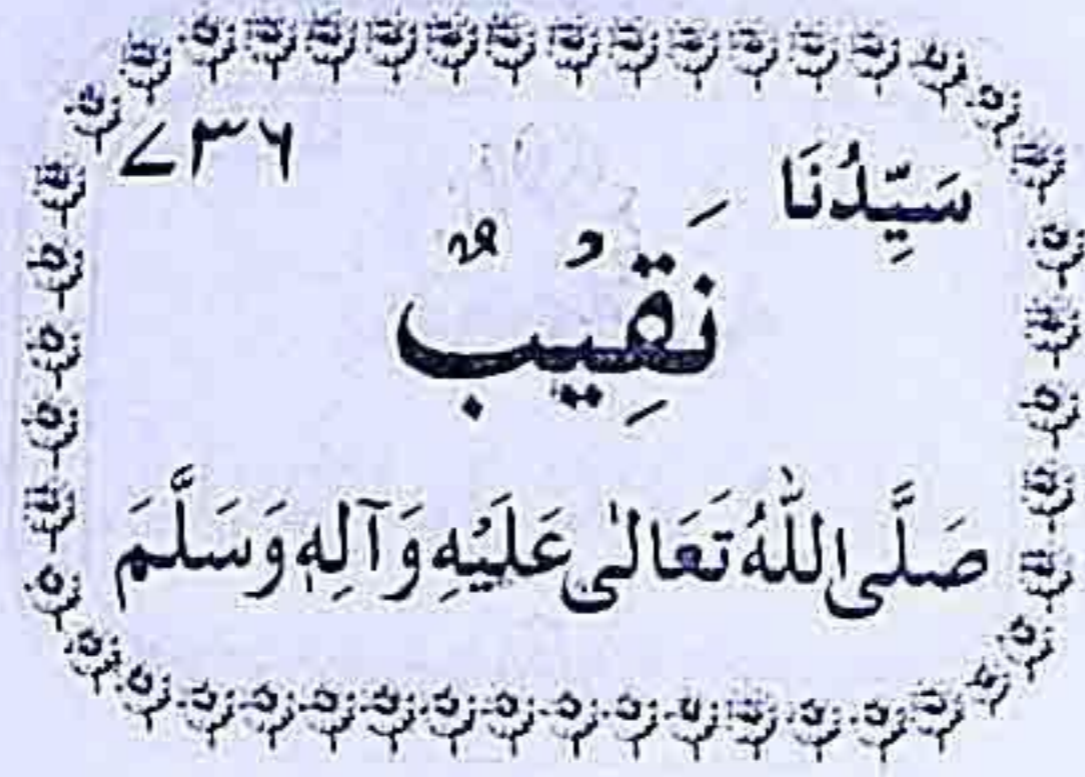 سَيِّدُنَا ۷۳۶
نَقِيْبٌ
صَلَّى اللّٰهُ تَعَالٰى عَلَيْهِ وَآلِهٖ وَسَلَّمَ